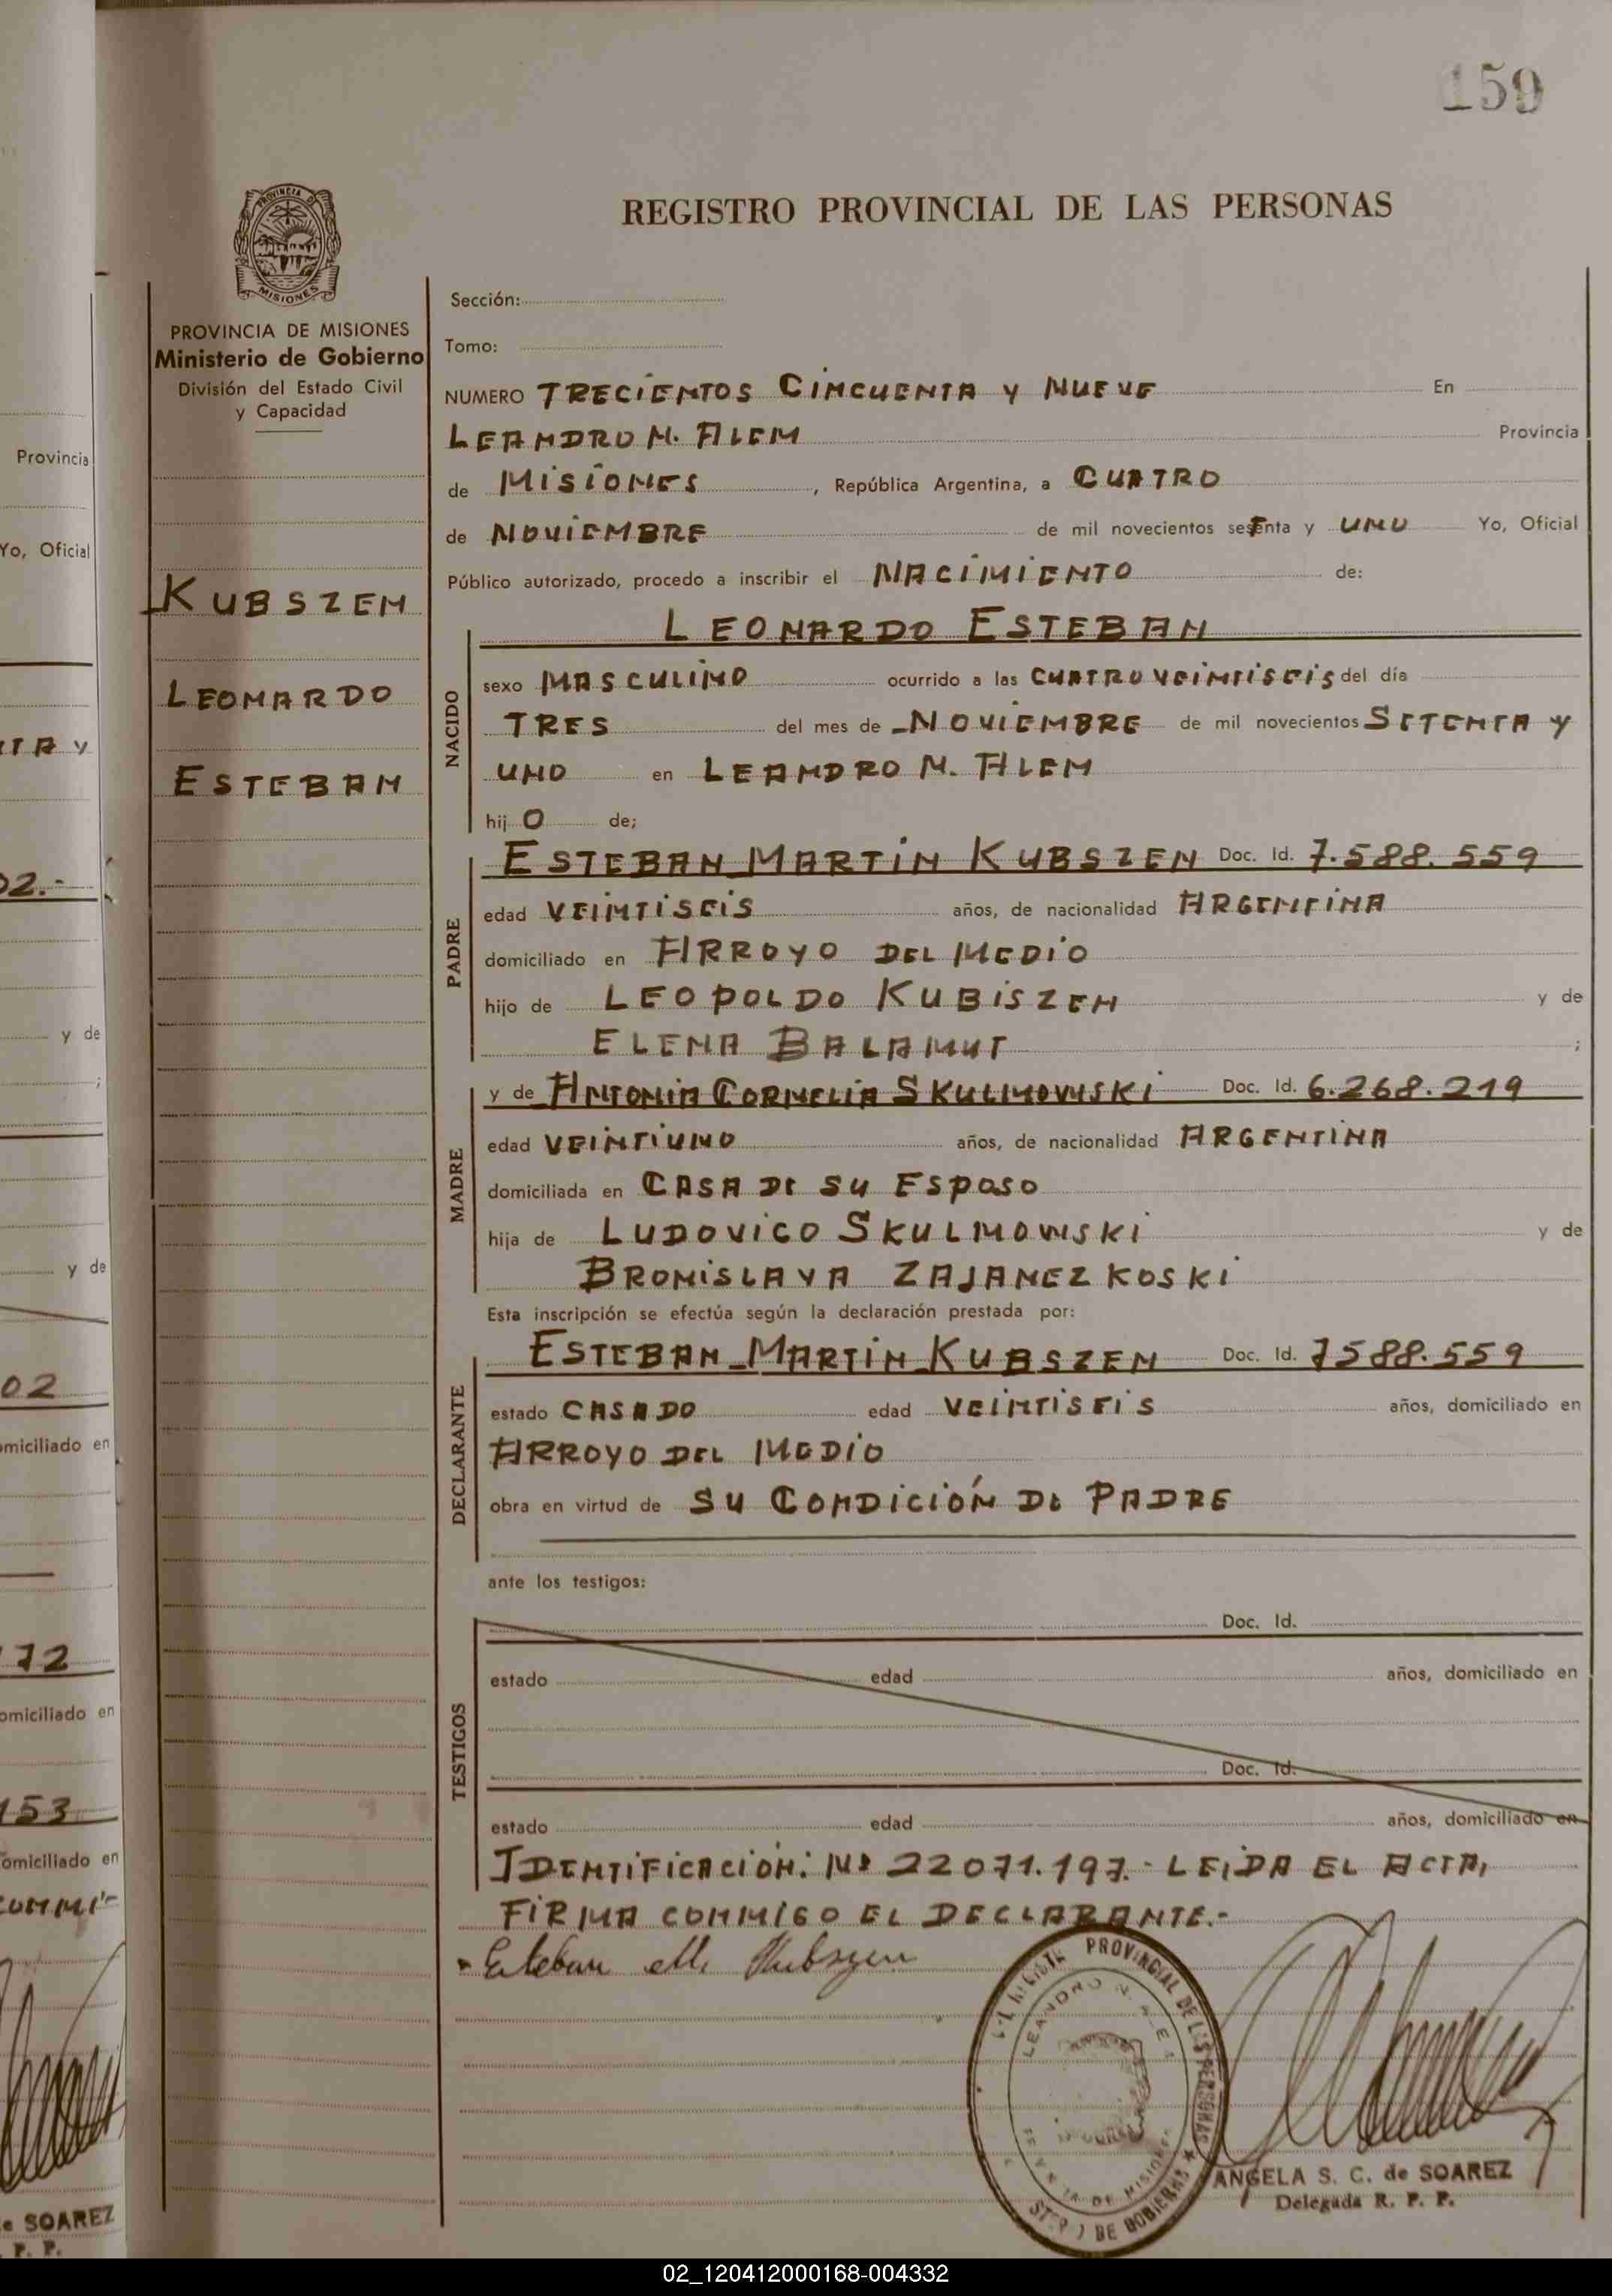 159
PROVINCIA DE MISIONES
MISIONES
PROVINCIA DE MISIONES
Ministerio de Gobierno
División del Estado Civil
y Capacidad
KUBSZEN
LEONARDO
ESTEBAN
REGISTRO PROVINCIAL DE LAS PERSONAS
Sección:
Tomo:
NUMERO TRECIENTOS CINCUENTA Y NUEVE En
LEANDRO N. ALEM Provincia
de MISIONES, República Argentina, a CUATRO
de NOVIEMBRE de mil novecientos setenta y UNO Yo, Oficial
Público autorizado, procedo a inscribir el NACIMIENTO de:
LEONARDO ESTEBAN
NACIDO
sexo MASCULINO ocurrido a las CUATRO VEINTISEIS del día
TRES del mes de NOVIEMBRE de mil novecientos SETENTA Y
UNO en LEANDRO N. ALEM
hijO de;
ESTEBAN MARTIN KUBSZEN Doc. Id. 7.588.559
PADRE
edad VEINTISEIS años, de nacionalidad ARGENTINA
domiciliado en ARROYO DEL MEDIO
hijo de LEOPOLDO KUBISZEN y de
ELENA BALAMUT ;
y de ANTONIA CORNELIA SKULMOWSKI Doc. Id. 6.268.219
MADRE
edad VEINTIUNO años, de nacionalidad ARGENTINA
domiciliada en CASA DE SU ESPOSO
hija de LUDOVICO SKULMOWSKI y de
BRONISLAVA ZAJANEZKOSKI
Esta inscripción se efectúa según la declaración prestada por:
ESTEBAN MARTIN KUBSZEN Doc. Id. 7588.559
DECLARANTE
estado CASADO edad VEINTISEIS años, domiciliado en
ARROYO DEL MEDIO
obra en virtud de SU CONDICIÓN DE PADRE
ante los testigos:
TESTIGOS
Doc. Id.
estado edad años, domiciliado en
Doc. Id.
estado edad años, domiciliado en
IDENTIFICACIÓN: Nº 22071.197.- LEIDA EL ACTA,
FIRMA CONMIGO EL DECLARANTE.-
Esteban M. Kubszen
PROVINCIAL DE LAS PERSONAS
LEANDRO N. ALEM
DE MISIONES
DE GOBIERNO
ANGELA S. C. de SOAREZ
Delegada R. P. P.
Provincia
Yo, Oficial
TA Y
02.-
y de
;
y de
02
omiciliado en
172
omiciliado en
153
omiciliado en
CONMI-
e SOAREZ
P. P.
02_120412000168-004332